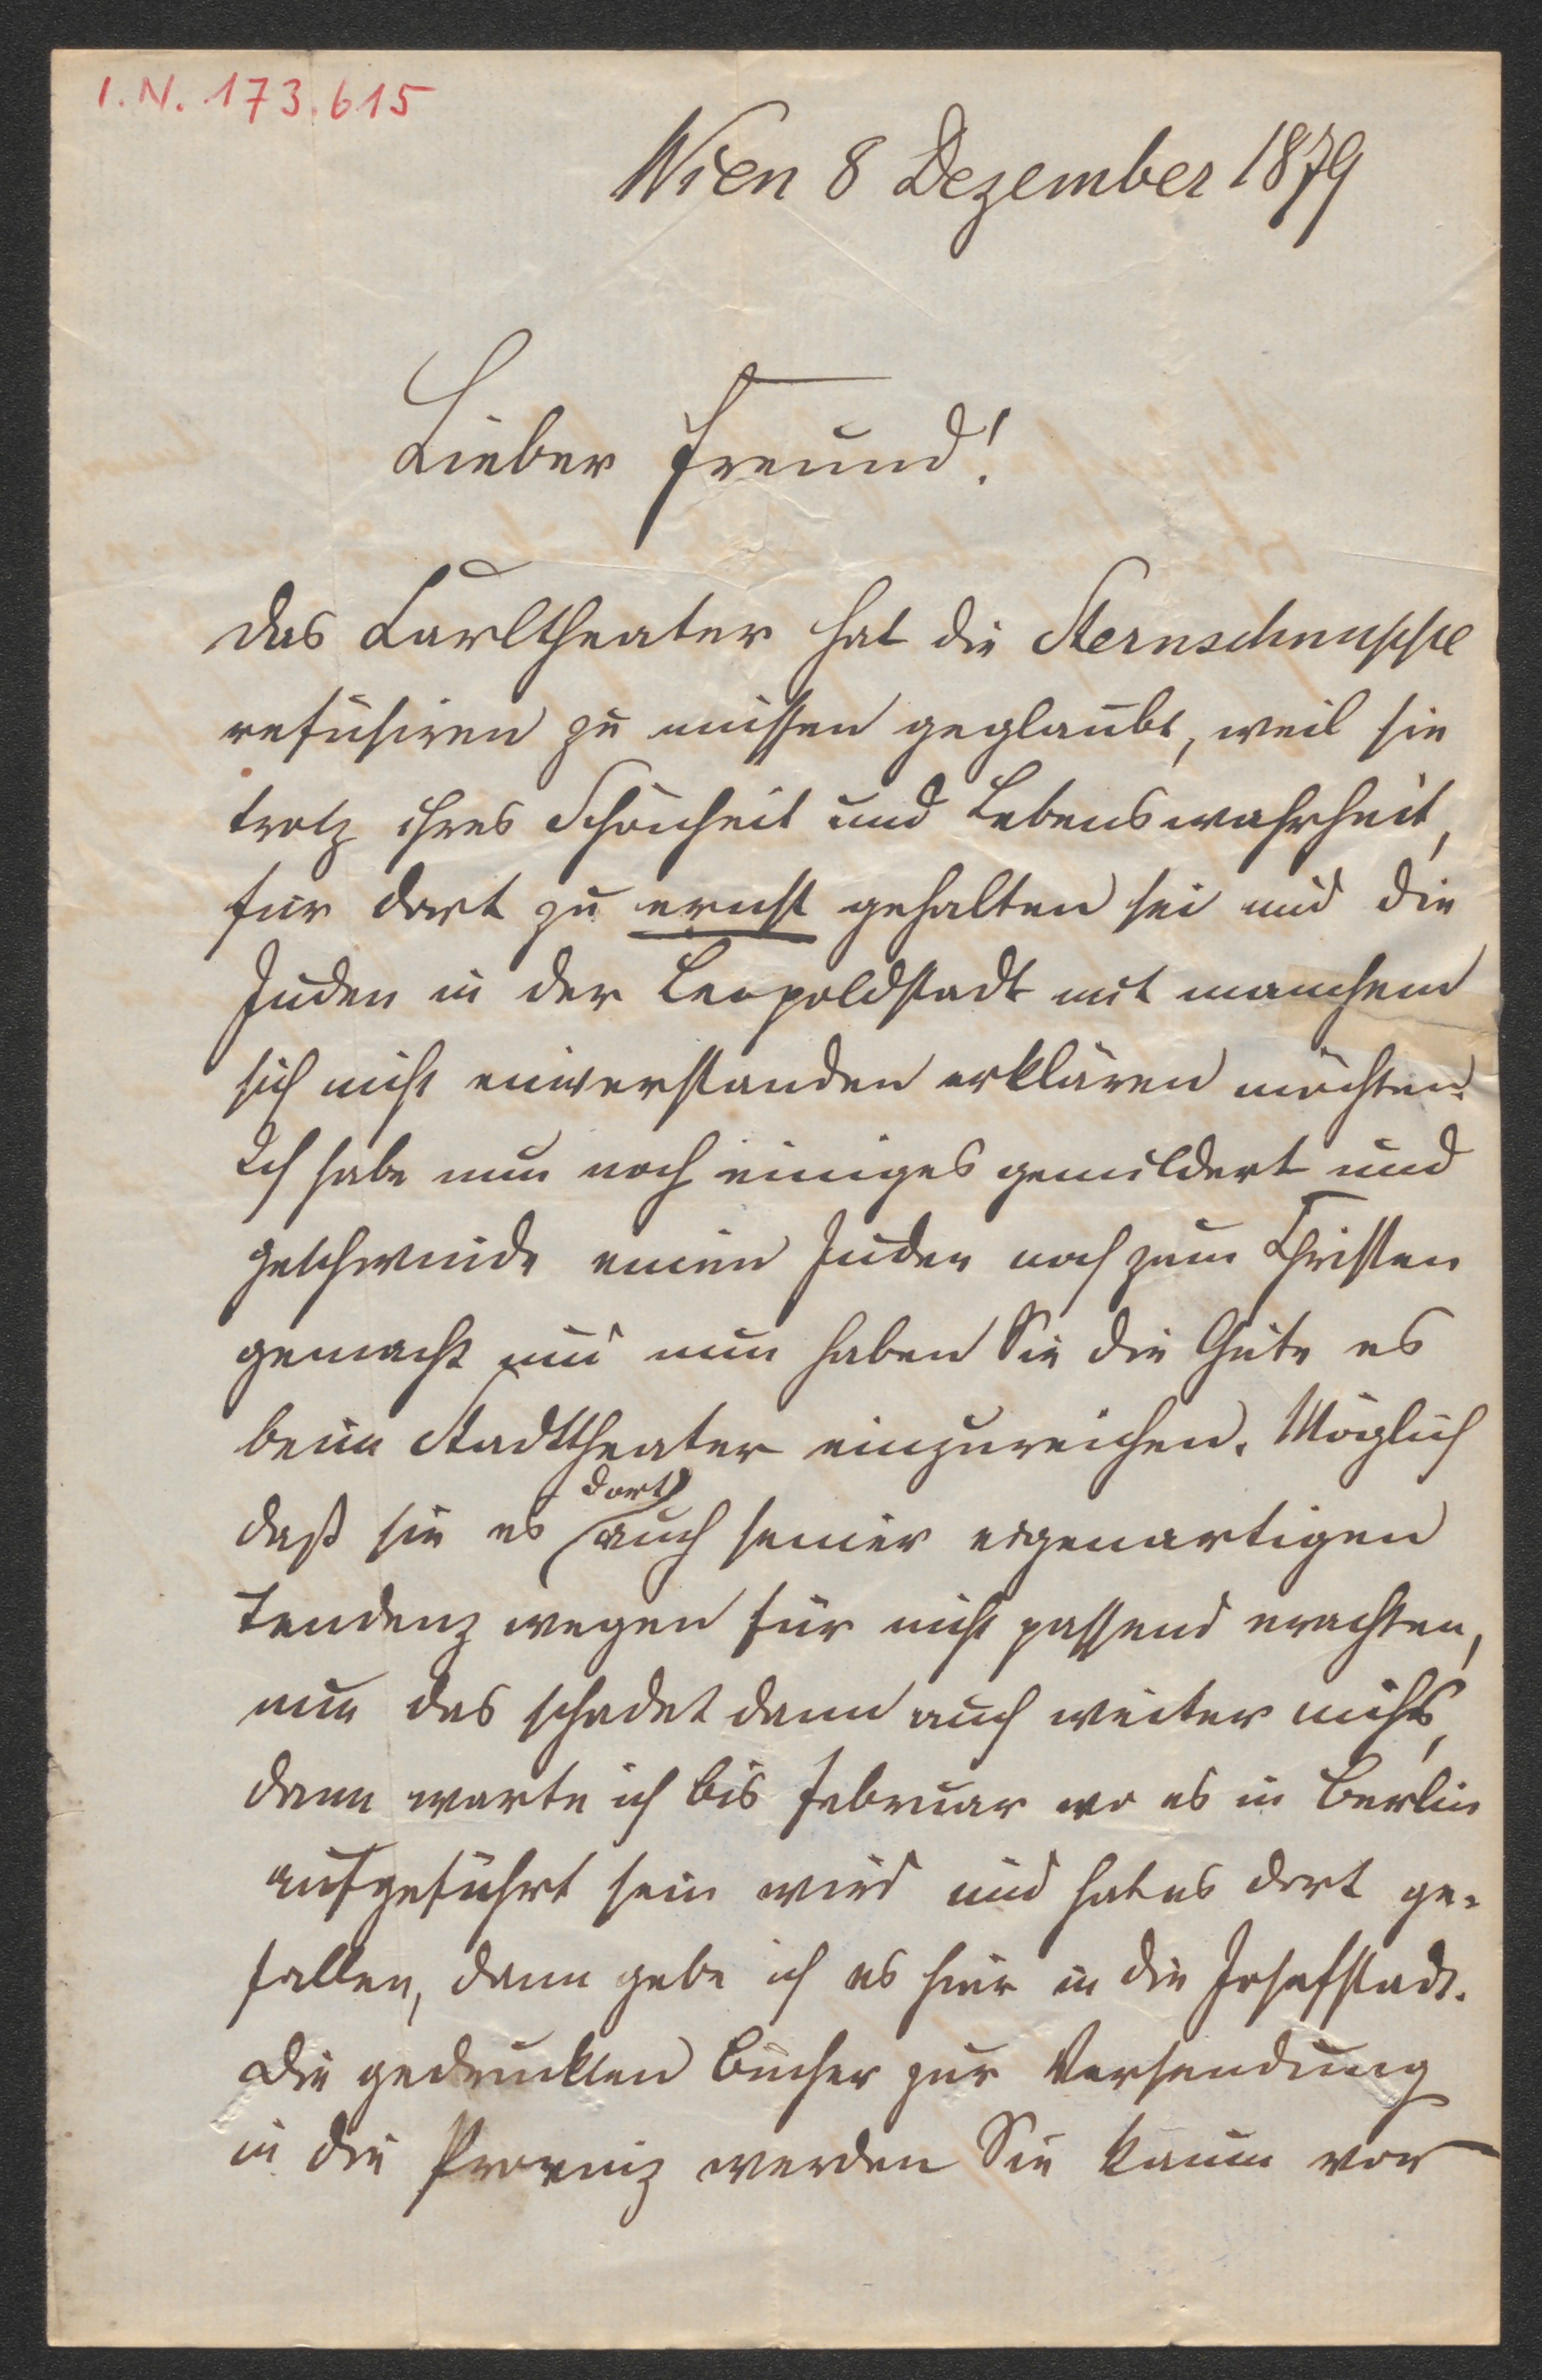 I.N. 173.615
Wien 8 Dezember 1879
Lieber Freund!
das Carltheater hat die Sternschnuppe
refusiren zu müssen geglaubt, weil sie
trotz ihres Schönheit und Lebenswahrheit,
für dort zu ernst gehalten sei und die
Juden in der Leopoldstadt mit manchem
sich nicht einverstanden erklären möchten.
Ich habe nun noch einiges gemildert und
geschwinde einen Juden noch zum Christen
gemacht und nun haben Sie die Güte es
beim Stadttheater einzureichen. Möglich
daß sie es dort auch seiner eigenartigen
Tendenz wegen für nicht passend erachten,
nun das schadet dann auch weiter nichts,
dann warte ich bis Februar wo es in Berlin
aufgeführt sein wird und hat es dort ge-
fallen, dann gebe ich es hier in die Josefstadt.
Die gedruckten Bücher zur Versendung
in die Provinz werden Sie kaum vor